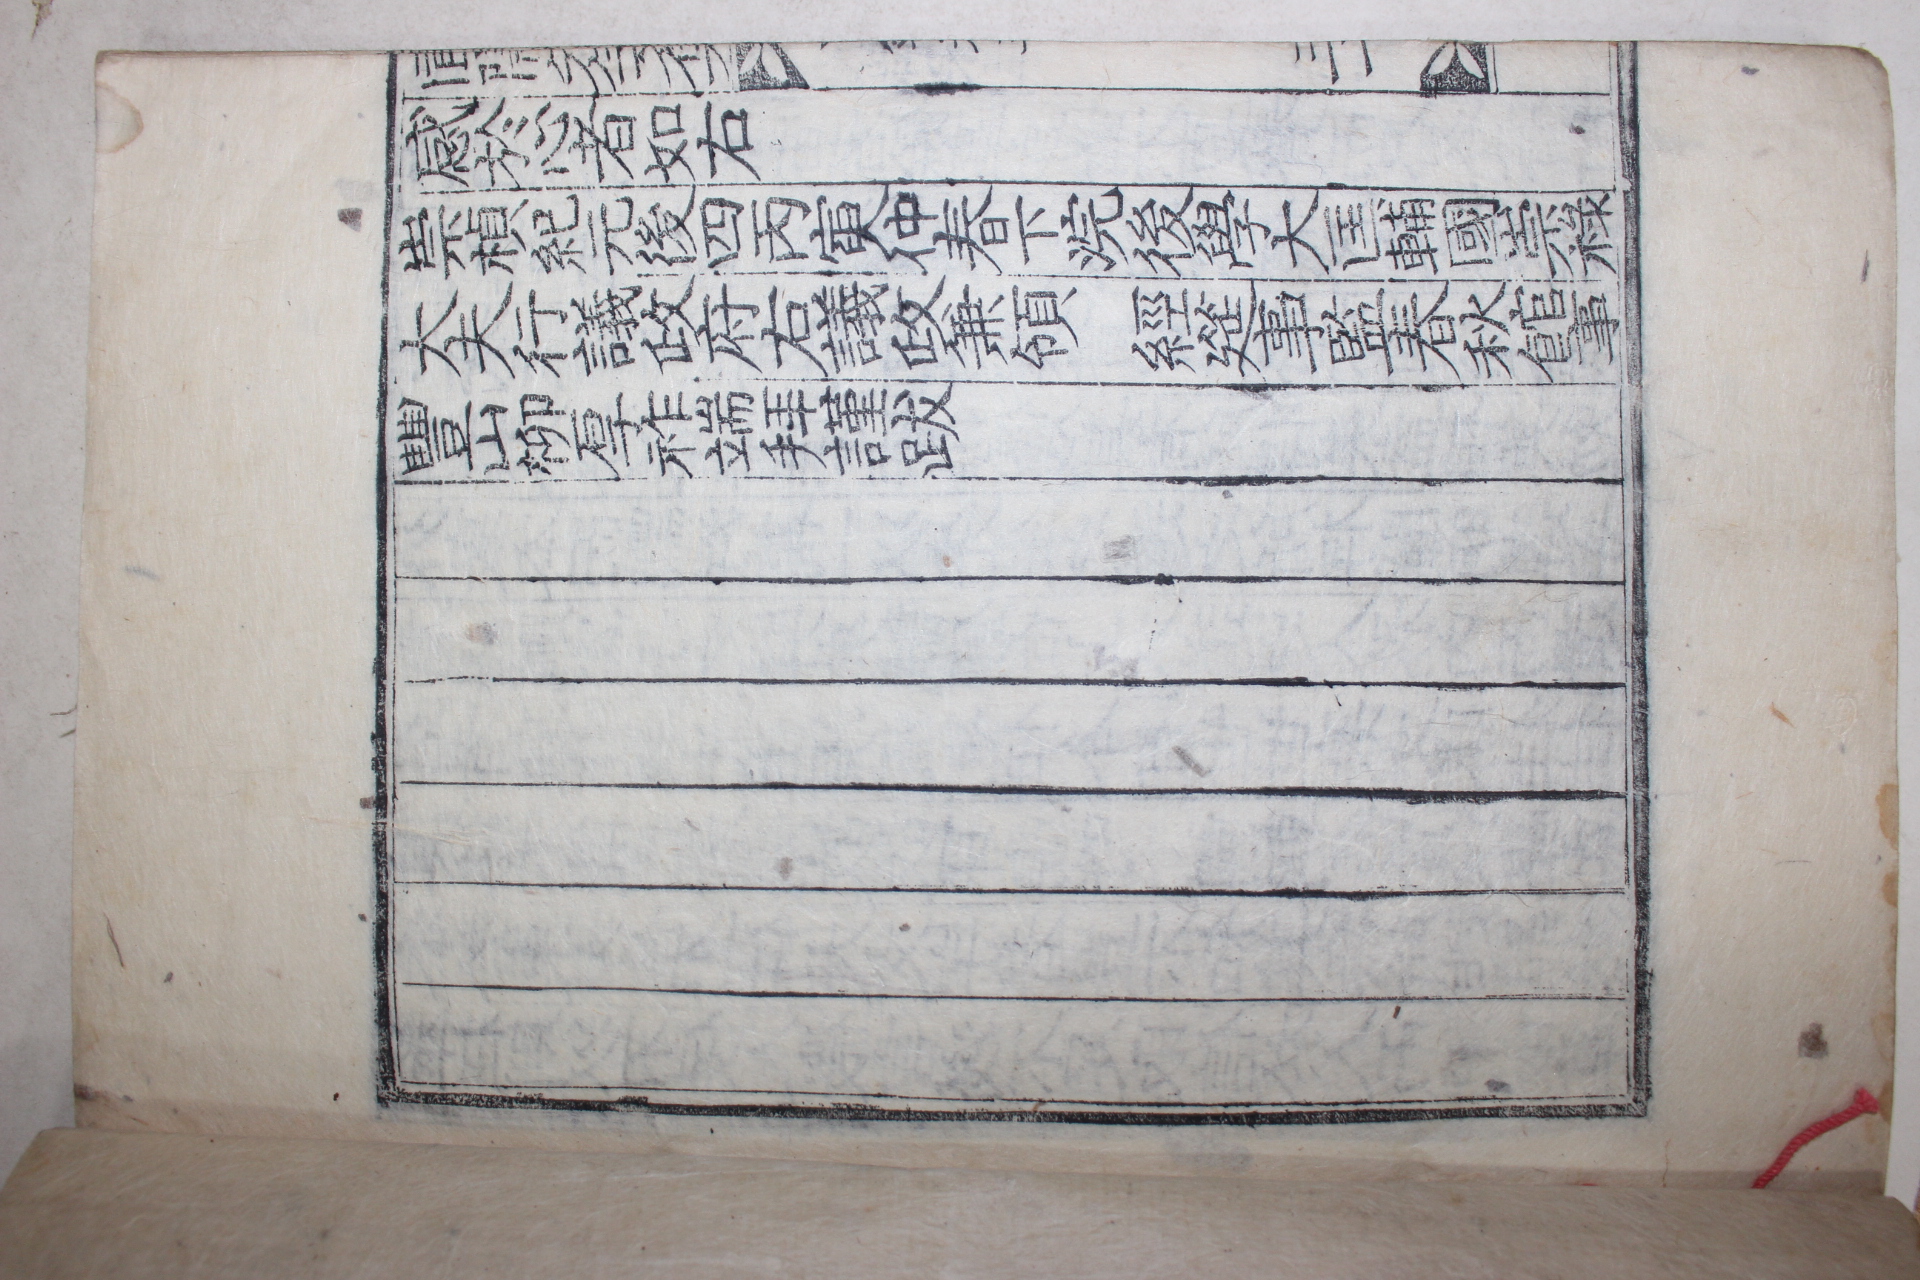 感於心者如右
崇楨紀元後四丙寅仲春下浣後學大匡輔國崇祿
大夫行議政府右議政兼領　經筵事監春秋館事
豐山柳厚祚端拜謹跋